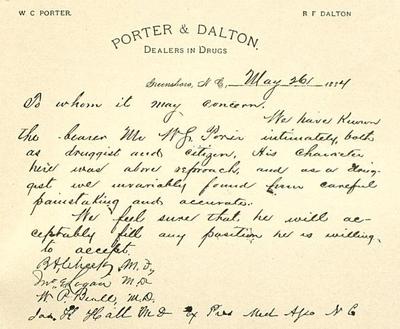 W C PORTER.
R F DALTON
PORTER & DALTON.
DEALERS IN DRUGS
Greensboro, N. C., May 26 1884
To whom it may concern.
We have known
the bearer Mr W S. Porter intimately, both
as druggist and citizen, His character
here was above reproach, and as a drug-
gist we invariably found him careful
painstaking and accurate.
We feel sure that he will ac-
ceptably fill any position he is willing
to accept.
M. D,
Logan M. D
W. P. Beall, M.D.
Jas. K Hall M D Ex Pres Med N C